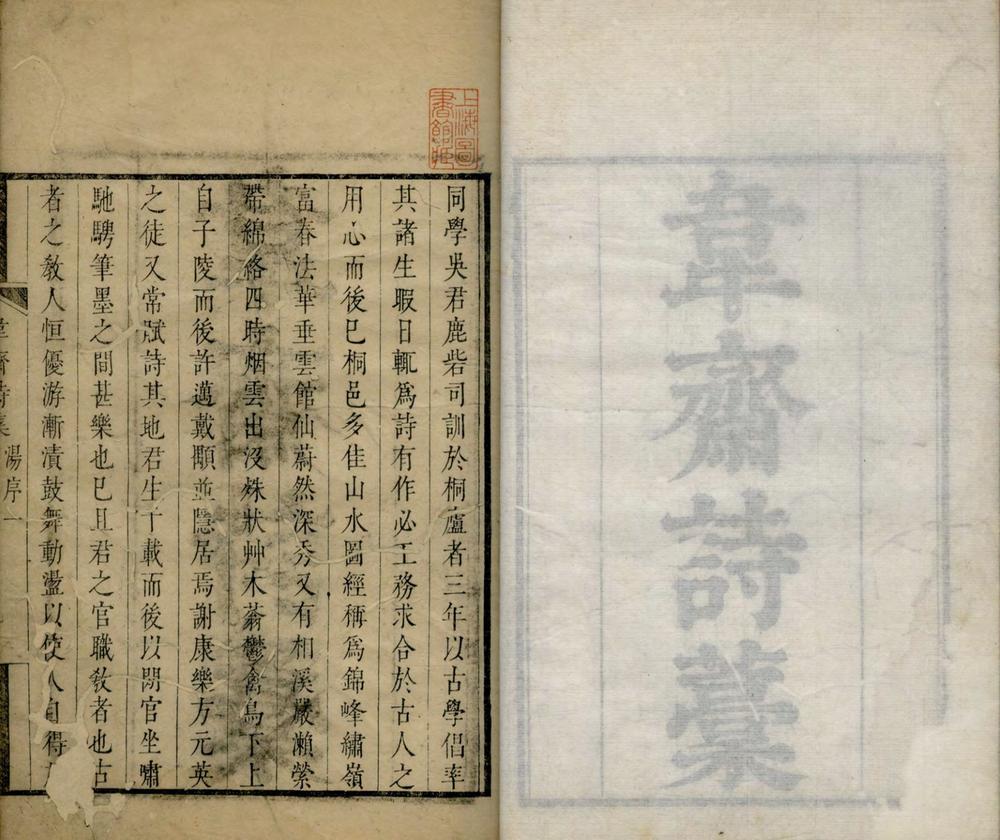 韋齋詩藁
上海圖書館藏
同學吳君鹿砦司訓於桐廬者三年以古學倡率
其諸生暇日輒爲詩有作必工務求合於古人之
用心而後已桐邑多佳山水圖經稱爲錦峰繡嶺
富春法華垂雲館仙蔚然深秀又有相溪嚴瀨縈
帶綿絡四時烟雲出沒殊狀艸木蓊鬱禽鳥下上
自子陵而後許邁戴顒並隱居焉謝康樂方元英
之徒又常賦詩其地君生千載而後以閒官坐嘯
馳騁筆墨之間甚樂也已且君之官職敎者也古
者之敎人恒優游漸漬鼓舞動盪以使人自得
韋齋詩集 湯序 一